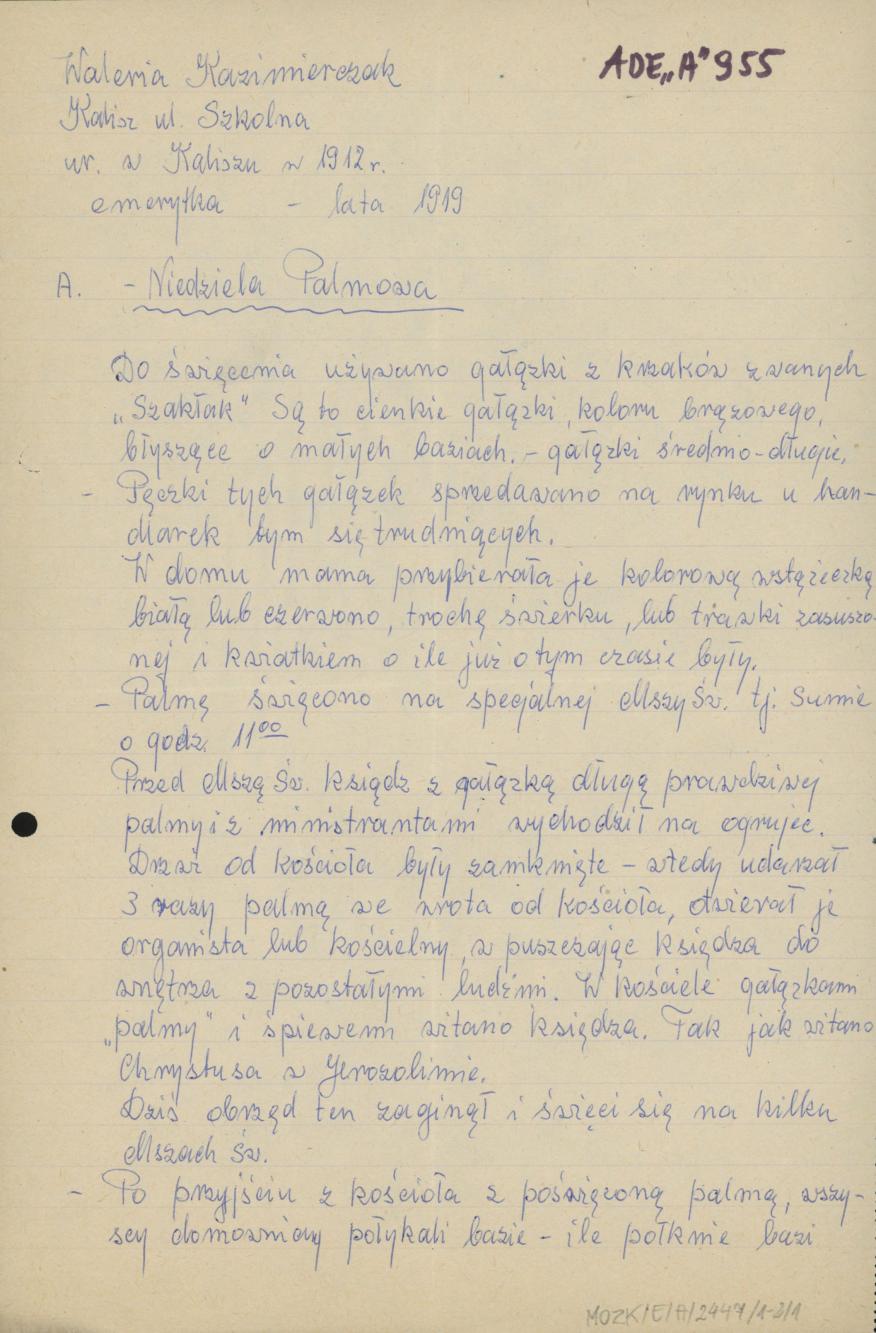 Waleria Kazimierczak
ADE„A"955
Kalisz ul. Szkolna
ur. w Kaliszu w 1912 r.
emerytka - lata 1919
A. - Niedziela Palmowa
Do święcenia używano gałązki z krzaków zwanych
„Szakłak" Są to cienkie gałązki, koloru brązowego,
błyszące o małych baziach. - gałązki średnio-długie,
- Pęczki tych gałązek sprzedawano na rynku u han-
dlarek tym się trudniących.
W domu mama przybierała je kolorową wstążeczką
białą lub czerwono, trochę świerku, lub trawki zasuszo-
nej i kwiatkiem o ile już o tym czasie były.
- Palmę święcono na specjalnej Mszy Św. tj. Sumie
o godz. 11⁰⁰
Przed Mszą Św. ksiądz z gałązką długą prawdziwej
palmy i z ministrantami wychodził na ogrujec.
Drzwi od kościoła były zamknięte - wtedy udarzał
3 razy palmą we wrota od kościoła, otwierał je
organista lub kościelny, wpuszczając księdza do
wnętrza z pozostałymi ludźmi. W kościele gałązkami
„palmy" i śpiewem witano księdza. Tak jak witano
Chrystusa w Jerozolimie.
Dziś obrząd ten zaginął i święci się na kilku
Mszach Św.
- Po przyjściu z kościoła z poświęconą palmą, wszy-
scy domownicy połykali bazie - ile połknie bazi
MOZK/E/A/2447/1-3/1